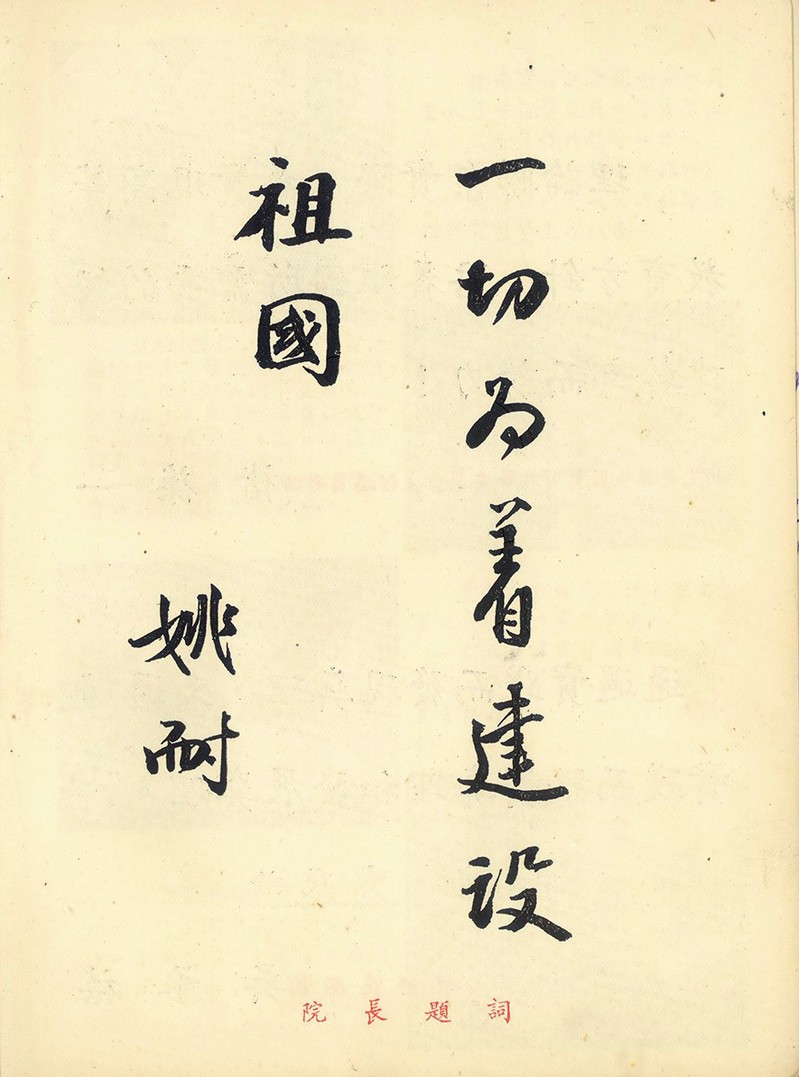 一切为着建设
祖國
姚耐
院長題詞